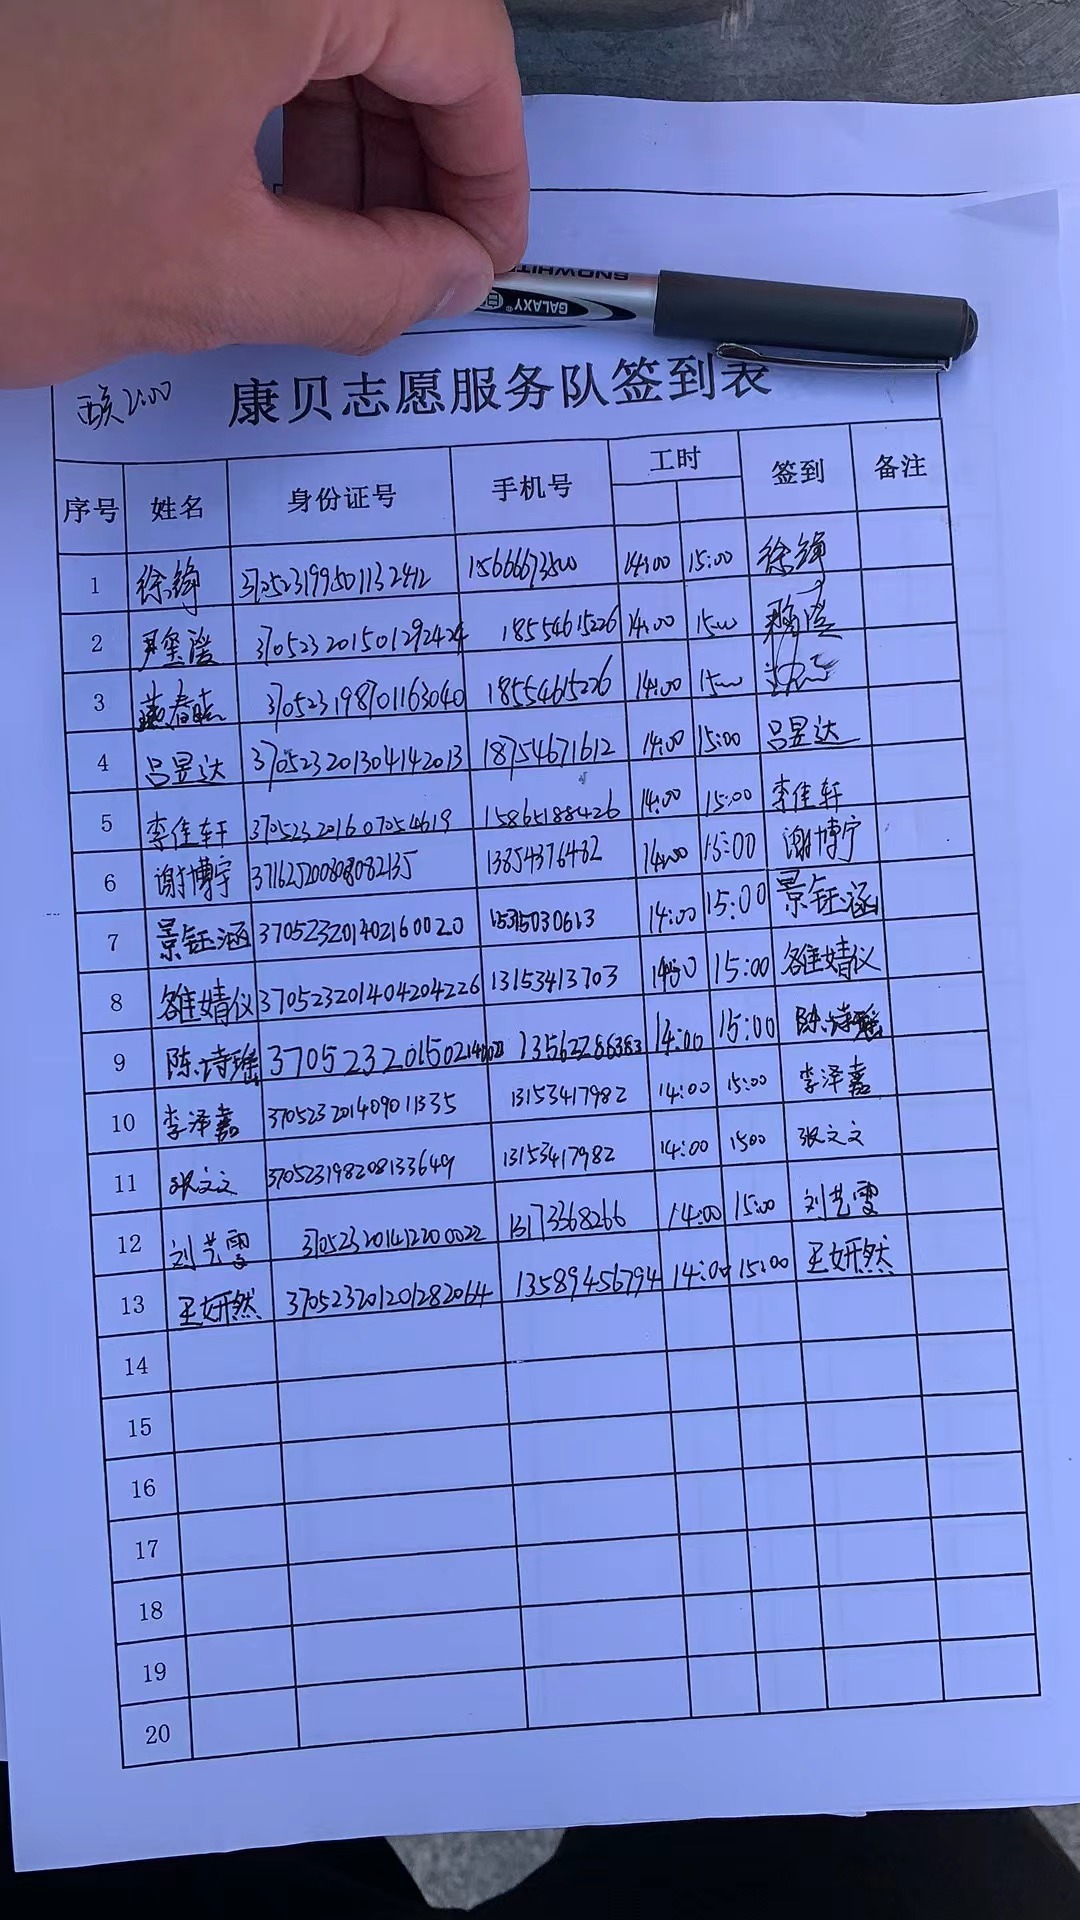 SNOWHIT
GALAXY
2:00
康贝志愿服务队签到表
序号 姓名 身份证号 手机号 工时 签到 备注
1 徐锋 370523199501132412 15666673500 14:00 15:00 徐锋
2 370523201501292424 18554615226 14:00 15:00
3 燕春燕 370523198701163040 18554615226 14:00 15:00
4 吕昱达 370523201304142013 18754671612 14:00 15:00 吕昱达
5 李佳轩 370523201607054619 15865188426 14:00 15:00 李佳轩
6 谢博宇 13854376482 14:00 15:00 谢博宇
7 景钰涵 370523201402160020 15315030613 14:00 15:00 景钰涵
8 雒婧仪 370523201404204226 13153413703 14:00 15:00 雒婧仪
9 陈诗瑶 13562286383 14:00 15:00 陈诗瑶
10 李泽嘉 370523201409011335 13153417982 14:00 15:00 李泽嘉
11 张文文 370523198208133649 13153417982 14:00 15:00 张文文
12 刘艺雯 370523201412200022 13173368266 14:00 15:00 刘艺雯
13 王妍然 370523201201282064 13589456794 14:00 15:00 王妍然
14
15
16
17
18
19
20